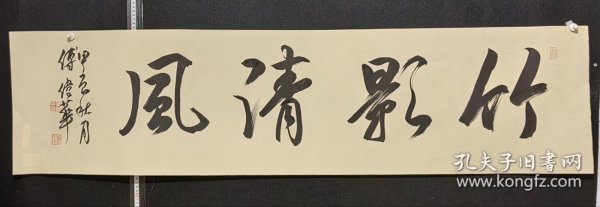 竹影清風
甲辰秋月
傅偉華
孔夫子旧书网
www.kongfz.com